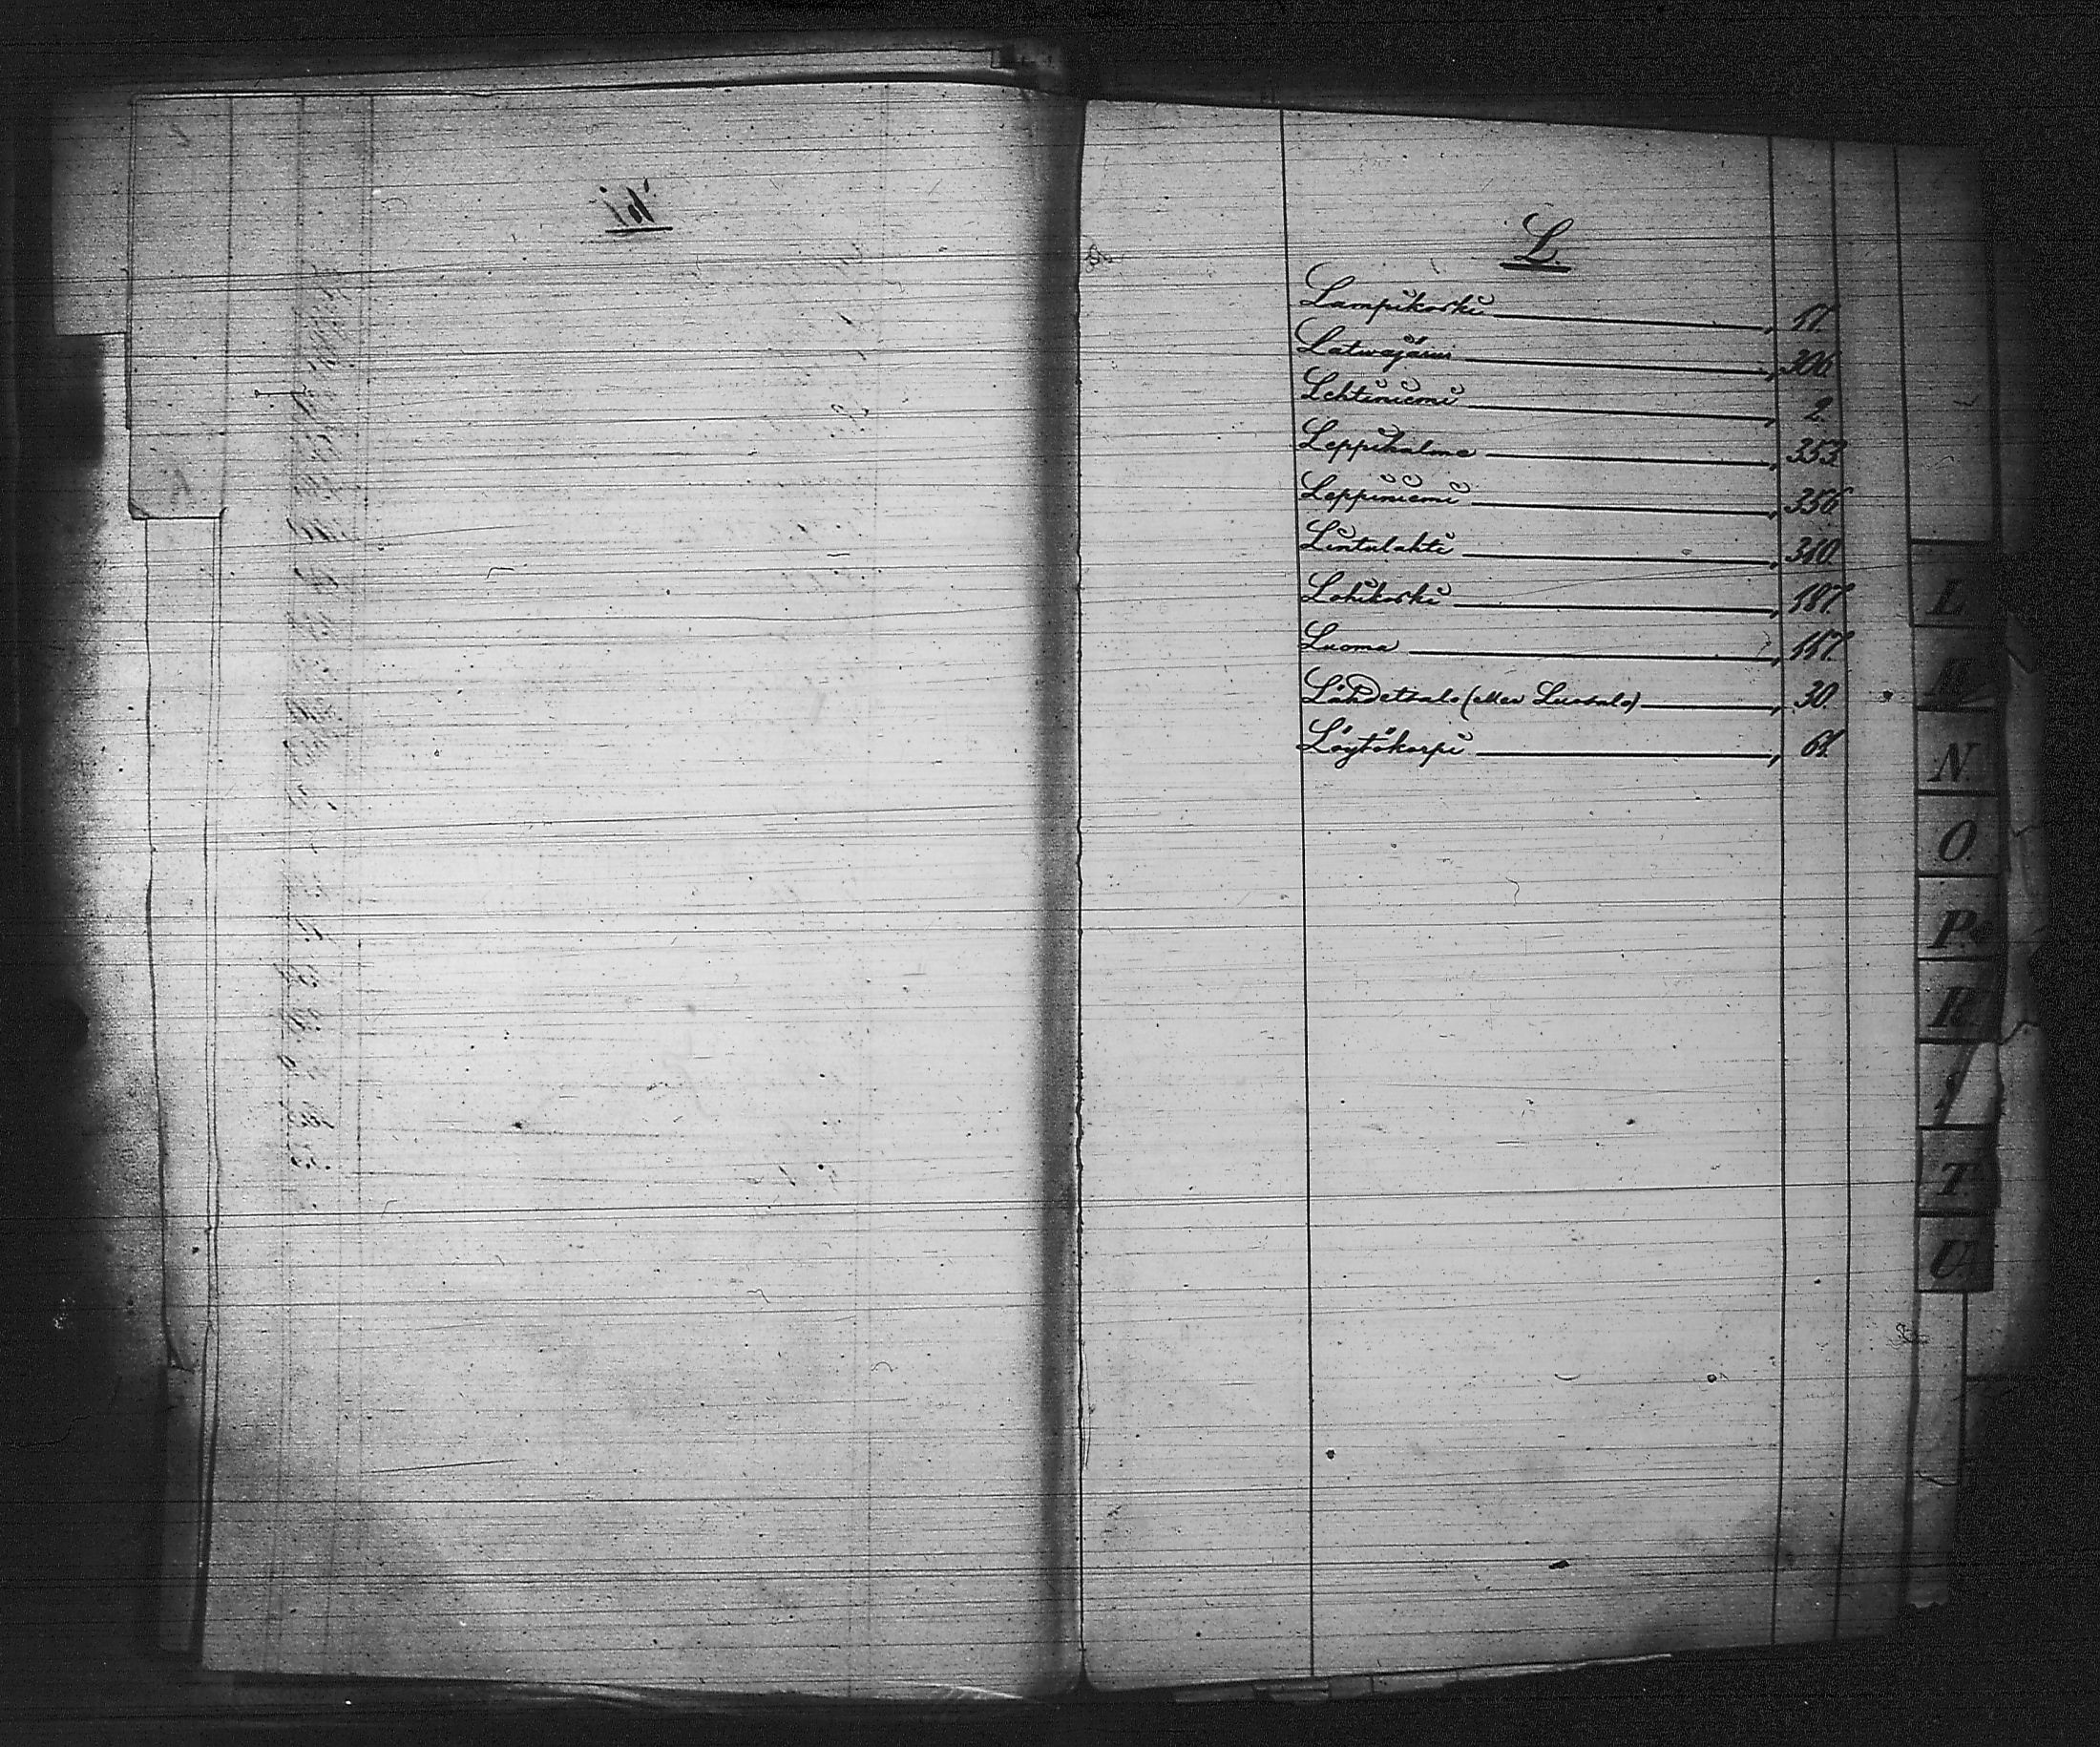 L.
Lampikoski , 17.
Latwajärwi , 306.
Lehtiniemi , 2.
Leppikalmo , 353.
Leppiniemi , 356.
Lintulahti , 340.
Lohikoski , 187.
Luoma , 117.
Lähdetsalo (eller Luotsalo) , 30.
Löytökorpi , 61.
L
N.
O.
P.
R.
T.
U.